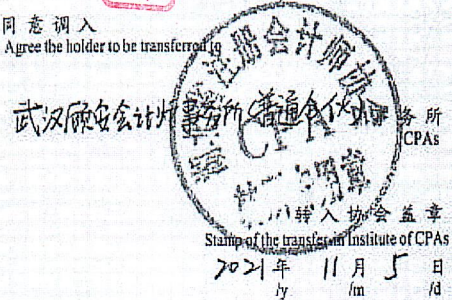 同意调入
Agree the holder to be transferred to
武汉顾安会计师事务所(普通合伙) 事务所
CPAs
注册会计师协会
CPA
转入协会盖章
Stamp of the transfer-in Institute of CPAs
2021年 11月 5日
/y /m /d